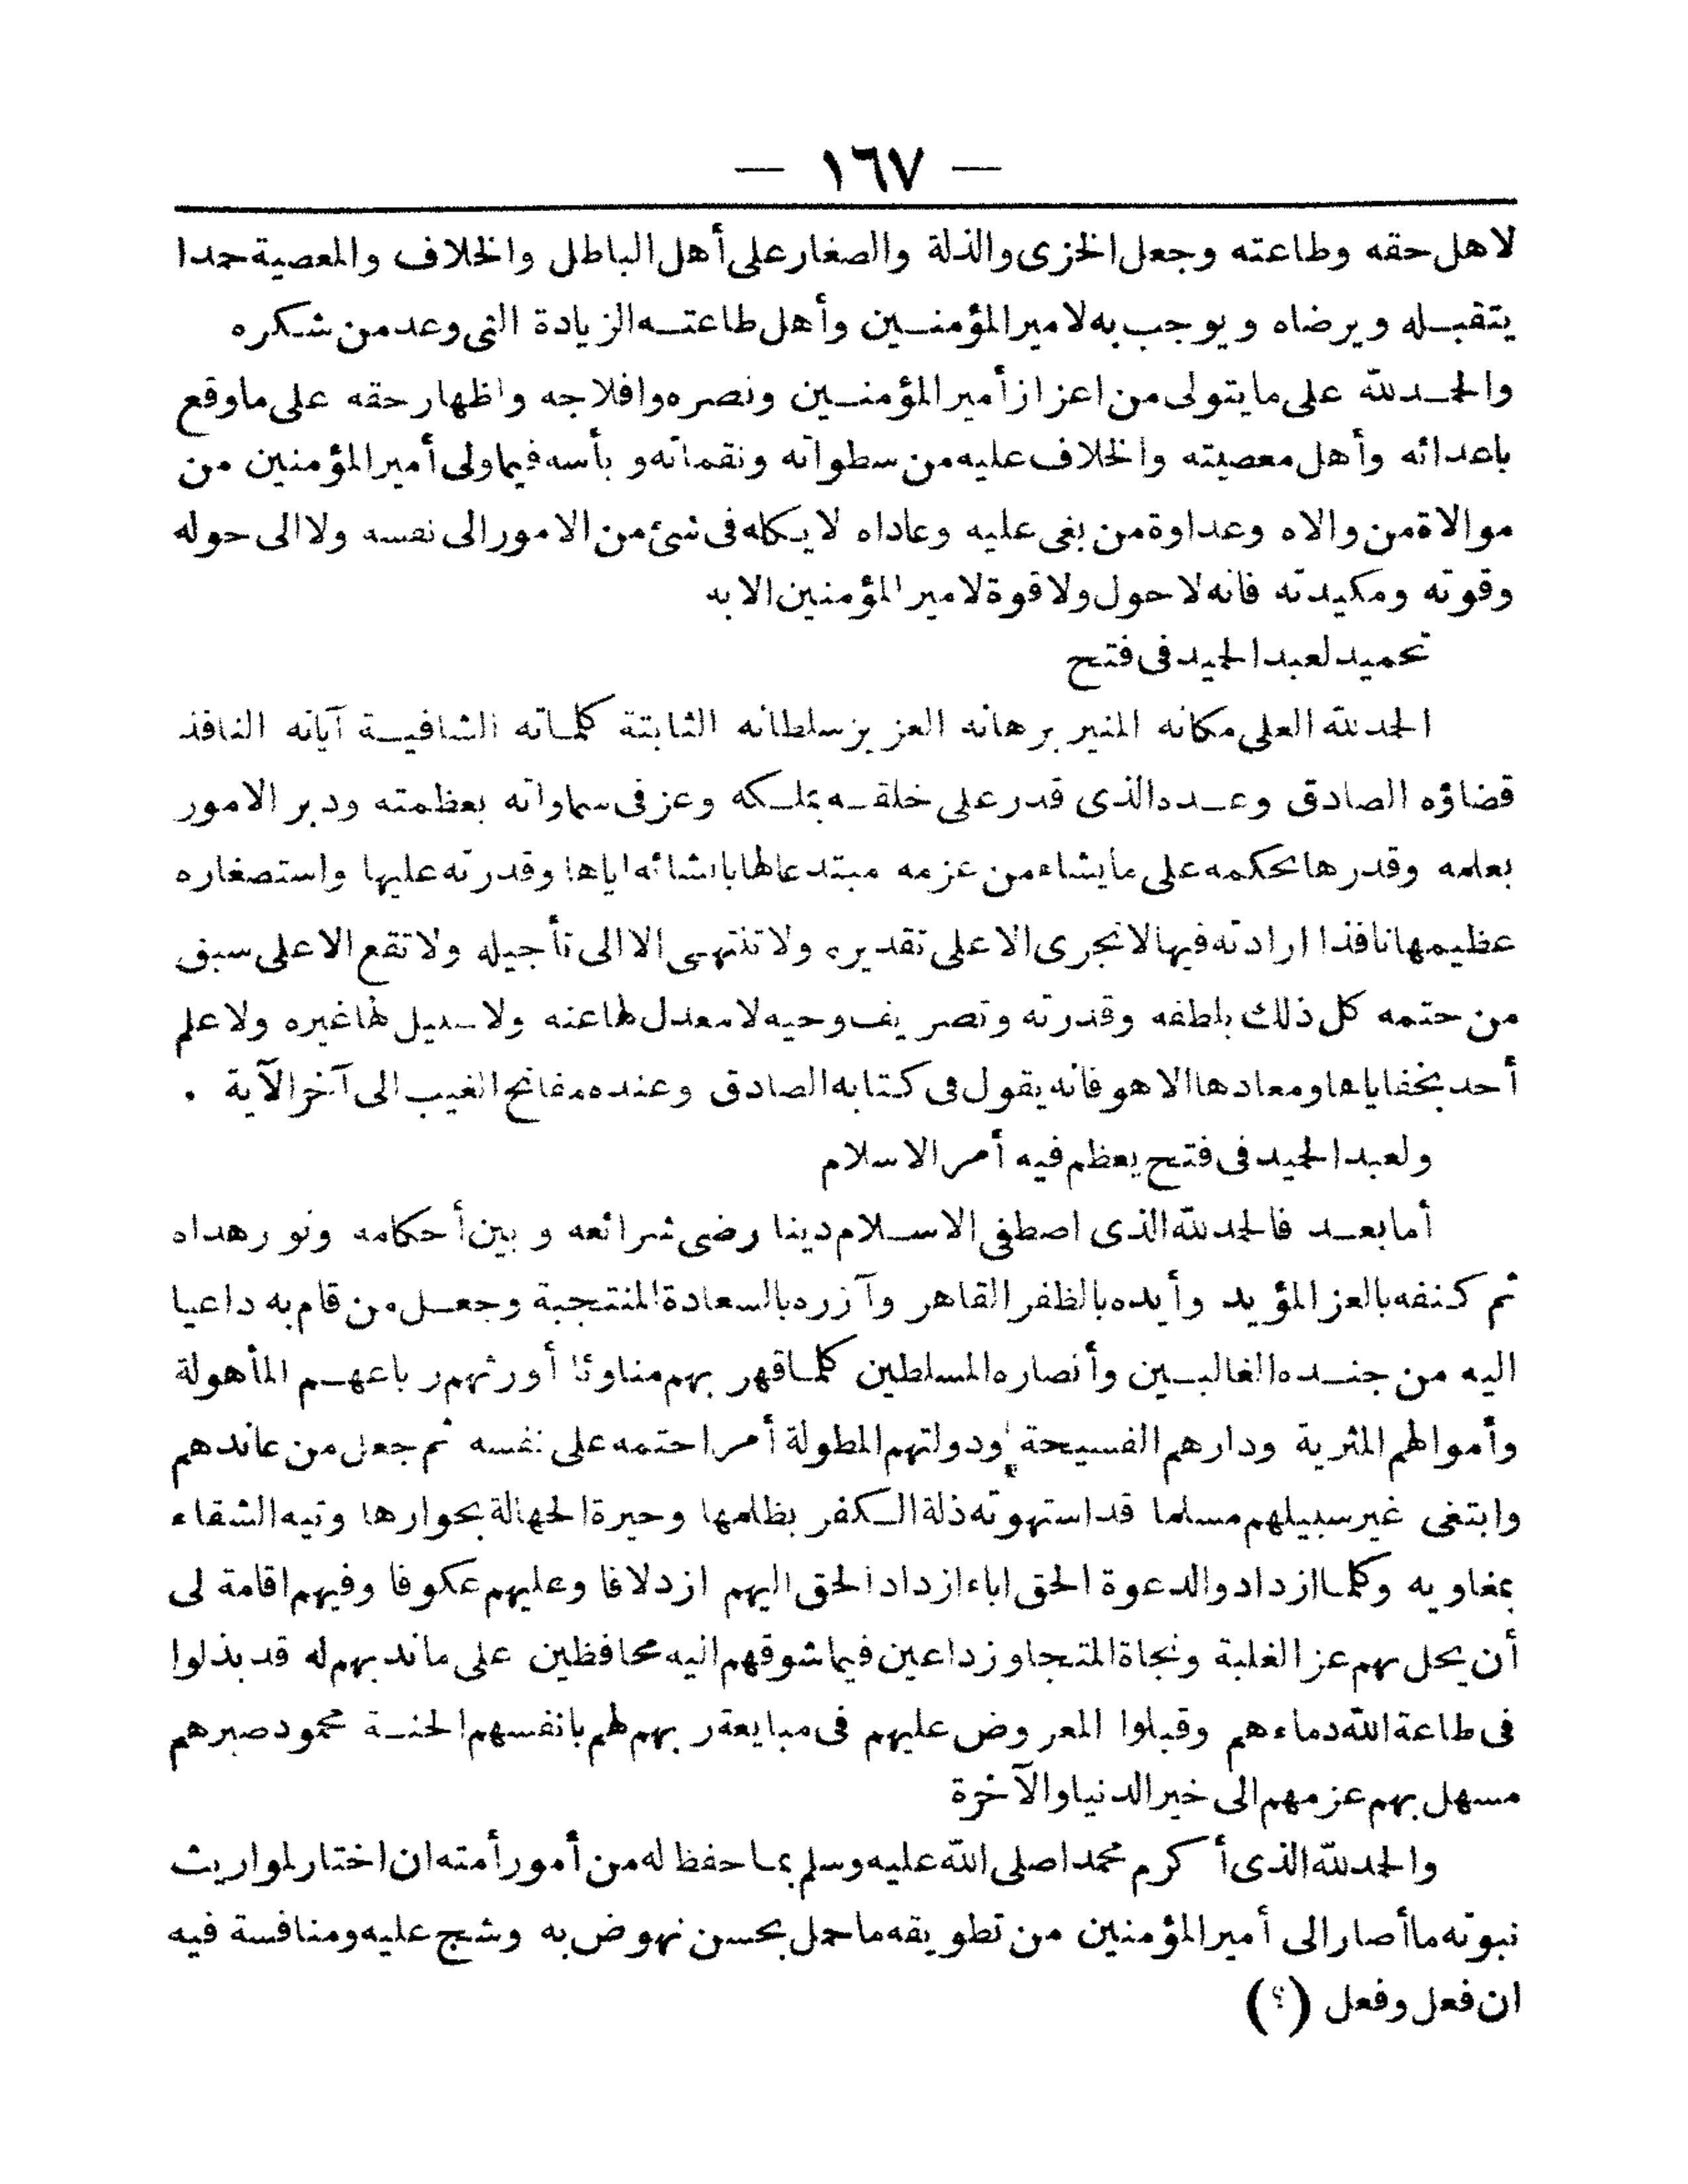 — ١٦٧ —
لاهل حقه وطاعته وجعل الخزى والذلة والصغار على أهل الباطل والخلاف والمعصية حمدا
يتقبله ويرضاه ويوجب به لامير المؤمنين وأهل طاعته الزيادة التى وعد من شكره
والحمد لله على ما يتولى من اعزاز أمير المؤمنين ونصره وافلاجه واظهار حقه على ما وقع
باعدائه وأهل معصيته والخلاف عليه من سطواته ونقماته وبأسه فيما ولى أمير المؤمنين من
موالاة من والاه وعداوة من بغى عليه وعاداه لا يكله فى شئ من الامور الى نفسه ولا الى حوله
وقوته ومكيدته فانه لا حول ولا قوة لامير المؤمنين الا به
تحميد لعبد الحميد فى فتح
الحمد لله العلى مكانه المنير برهانه العزيز سلطانه الثابتة كلماته الشافية آياته النافذ
قضاؤه الصادق وعده الذى قدر على خلقه بملكه وعز فى سماواته بعظمته ودبر الامور
بعلمه وقدرها بحكمه على ما يشاء من عزمه مبتدعا لها بانشائه اياها وقدرته عليها واستصغاره
عظيمها نافذا ارادته فيها لا تجرى الا على تقديره ولا تنتهى الا الى تأجيله ولا تقع الا على سبق
من حتمه كل ذلك بلطفه وقدرته وتصريف وحيه لا معدل لها عنه ولا سبيل لها غيره ولا علم
أحد بخفاياها ومعادها الا هو فانه يقول فى كتابه الصادق وعنده مفاتح الغيب الى آخر الآية .
ولعبد الحميد فى فتح يعظم فيه أمر الاسلام
أما بعد فالحمد لله الذى اصطفى الاسلام دينا رضى شرائعه وبين أحكامه ونور هداه
ثم كنفه بالعز المؤيد وأيده بالظفر القاهر وآزره بالسعادة المنتجبة وجعل من قام به داعيا
اليه من جنده الغالبين وأنصاره المسلطين كلما قهر بهم مناوئا أورثهم رباعهم المأهولة
وأموالهم المثرية ودارهم الفسيحة ودولتهم المطولة أمرا حتمه على نفسه ثم جعل من عاندهم
وابتغى غير سبيلهم مسلما قد استهوته ذلة الكفر بظلمها وحيرة الجهالة بحوارها وتيه الشقاء
بمغاويه وكلما ازدادوا لدعوة الحق اباء ازداد الحق اليهم ازدلافا وعليهم عكوفا وفيهم اقامة لى
أن يحل بهم عز الغلبة ونجاة المتجاوز داعين فيما شوقهم اليه محافظين على ما ندبهم له قد بذلوا
فى طاعة الله دماءهم وقبلوا المعروض عليهم فى مبايعة ربهم لهم بانفسهم الجنة محمود صبرهم
مسهل بهم عزمهم الى خير الدنيا والآخرة
والحمد لله الذى أكرم محمدا صلى الله عليه وسلم بما حفظ له من أمور أمته ان اختار لمواريث
نبوته ما أصار الى أمير المؤمنين من تطويقه ما حمل بحسن نهوض به وشح عليه ومنافسة فيه
ان فعل وفعل (؟)